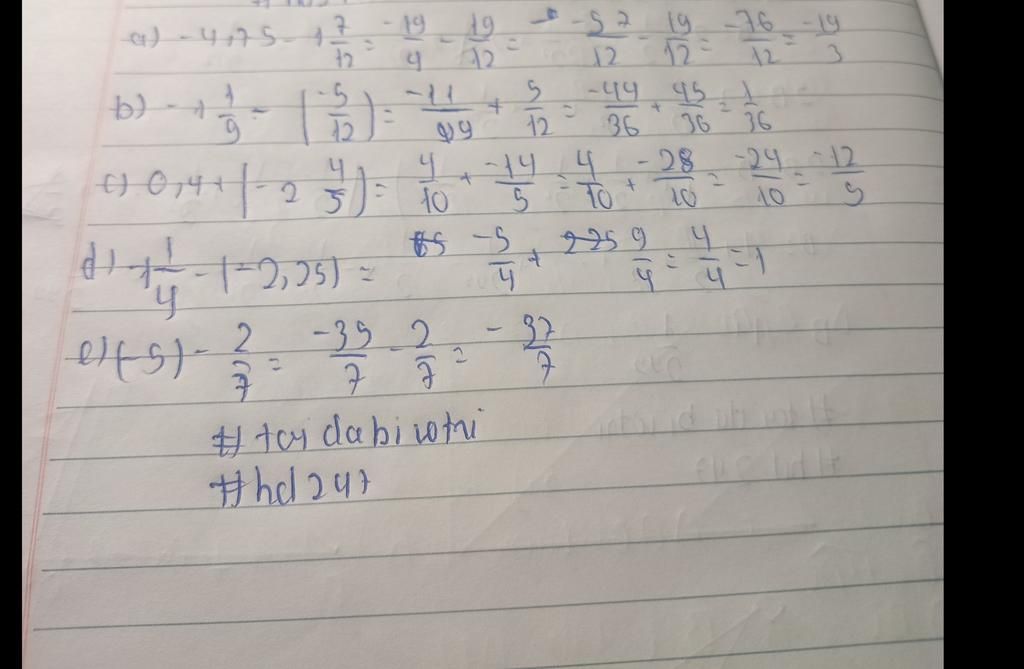 a) -4,75 - 1 7/12 = -19/4 - 19/12 = -57/12 - 19/12 = -76/12 = -19/3
b) -1 1/9 - (-5/12) = -11/9 + 5/12 = -44/36 + 45/36 = 1/36
c) 0,4 + (-2 4/5) = 4/10 + -14/5 = 4/10 + -28/10 = -24/10 = -12/5
d) -1 1/4 - (-2,25) = -5/4 + 9/4 = 4/4 = 1
e) (-5) - 2/7 = -35/7 - 2/7 = -37/7
#toidabiwtri
#hd247